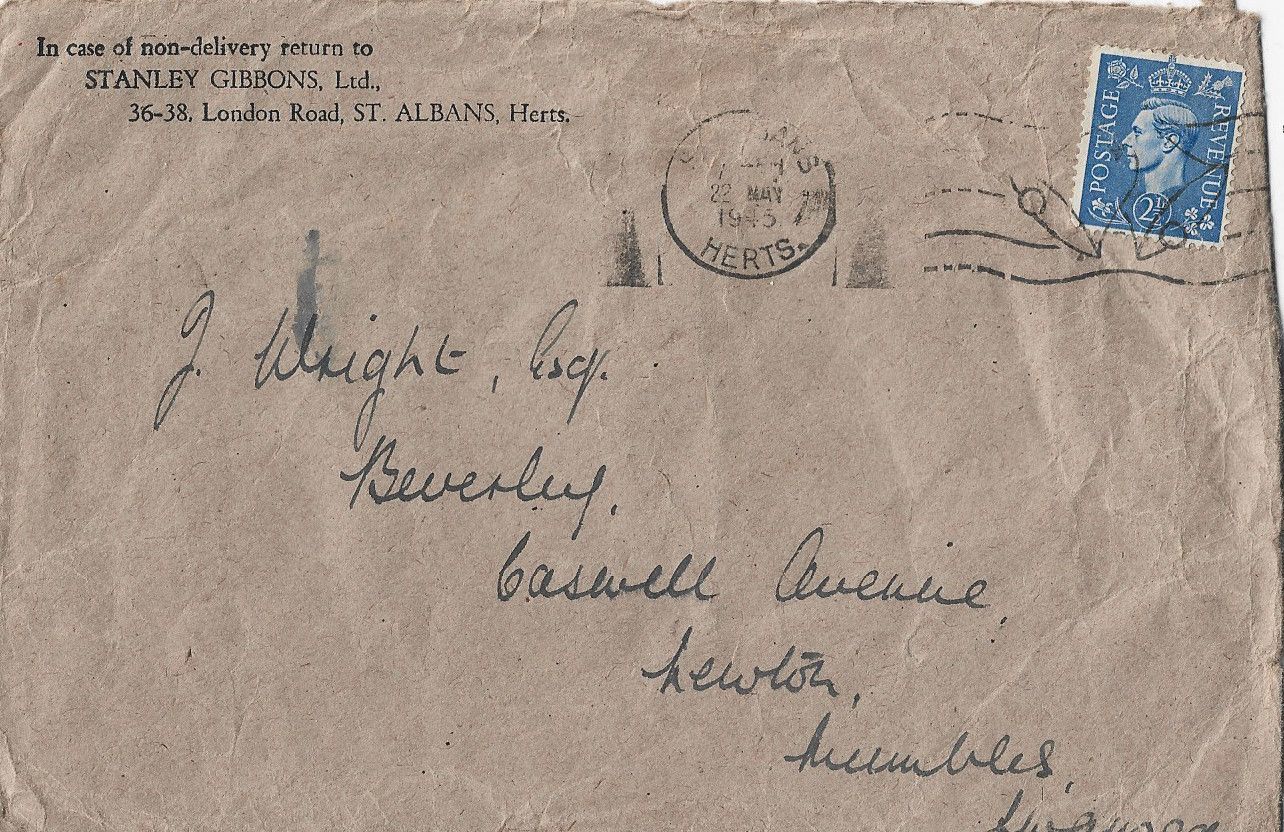 In case of non-delivery return to
STANLEY GIBBONS, Ltd.,
36-38, London Road, ST. ALBANS, Herts.
POSTAGE
REVENUE
2½
22 MAY
1945
HERTS.
J. Wright, Esq.
Beverley,
Caswell Avenue,
Newton,
Mumbles,
Swansea